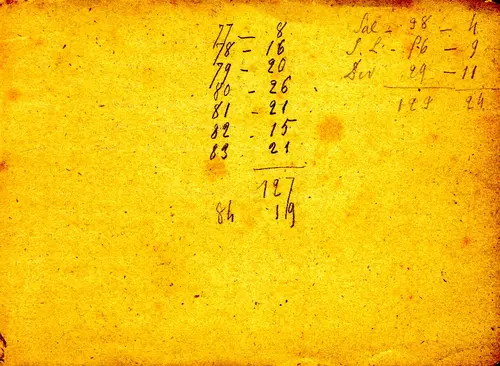 77 - 8
78 - 16
79 - 20
80 - 26
81 - 21
82 - 15
83 21
127
84 19
Sal - 98 - 4
S. L. - - 9
29 - 11
24